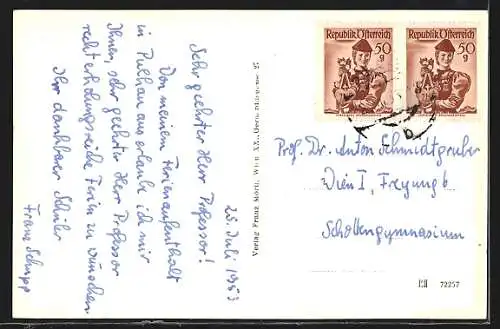 25. Juli 1953
Sehr geehrter Herr Professor!
Von meinem Ferienaufenthalt
in Pulkau aus erlaube ich mir
Ihnen, sehr geehrter Herr Professor
recht erholungsreiche Ferien zu wünschen
Ihr dankbarer Schüler
Franz Schupp
Verlag Franz Mörtl, Wien XX.,
Republik Österreich
50
g
Republik Österreich
50
g
Prof. Dr. Anton Schmidtgruber
Wien I, Freyung 6
Schottengymnasium
72257